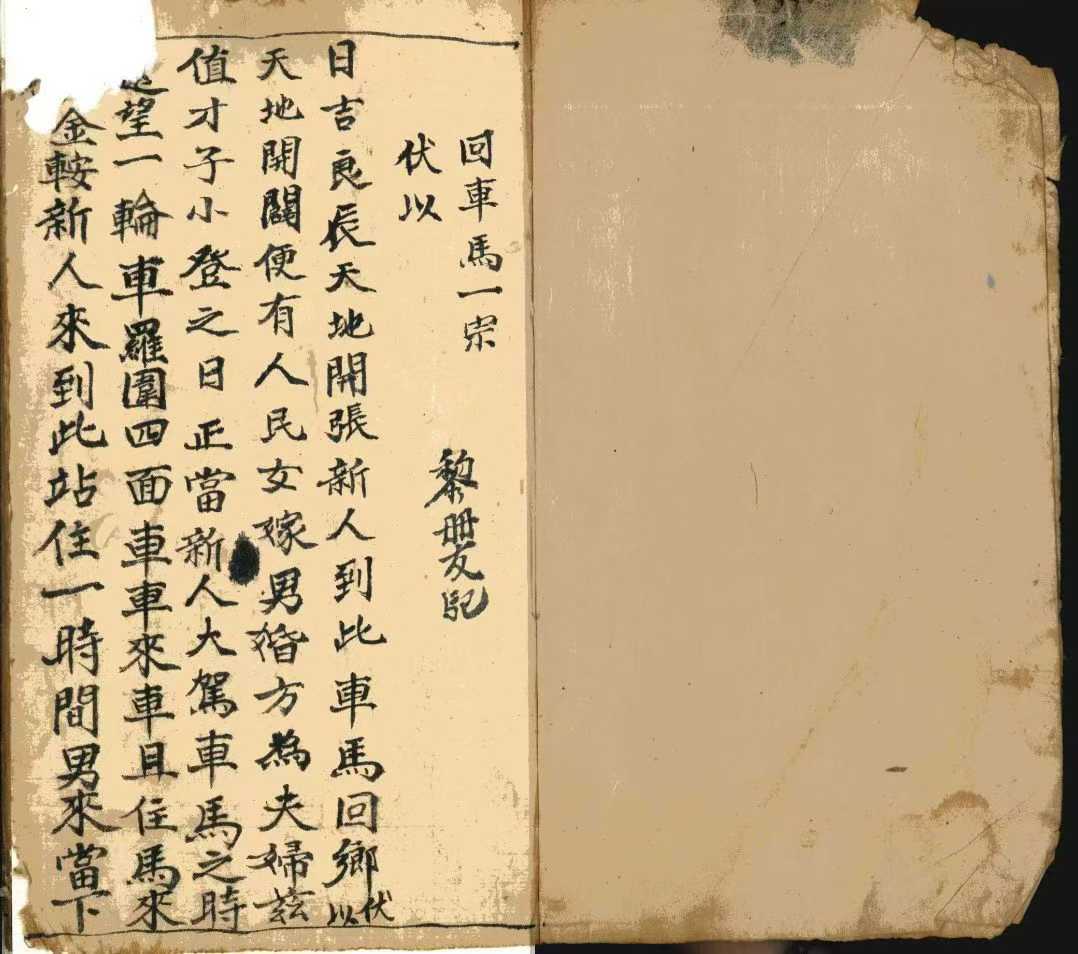 回車馬一宗
黎 友記
伏以
日吉良辰天地開張新人到此車馬回鄉伏以
天地開闢便有人民女嫁男婚方為夫婦茲
值才子小登之日正當新人大駕車馬之時
望一輪車羅圍四面車車來車且住馬來
金鞍新人來到此站住一時間男來當下